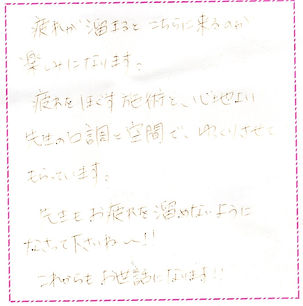 疲れが溜まるとこちらに来るのが
楽しみになります。
疲れをほぐす施術と、心地よい
先生の口調と空間で、ゆっくりさせて
もらっています。
先生もお疲れを溜めないように
なさって下さいね〜!!
これからもお世話になります!!